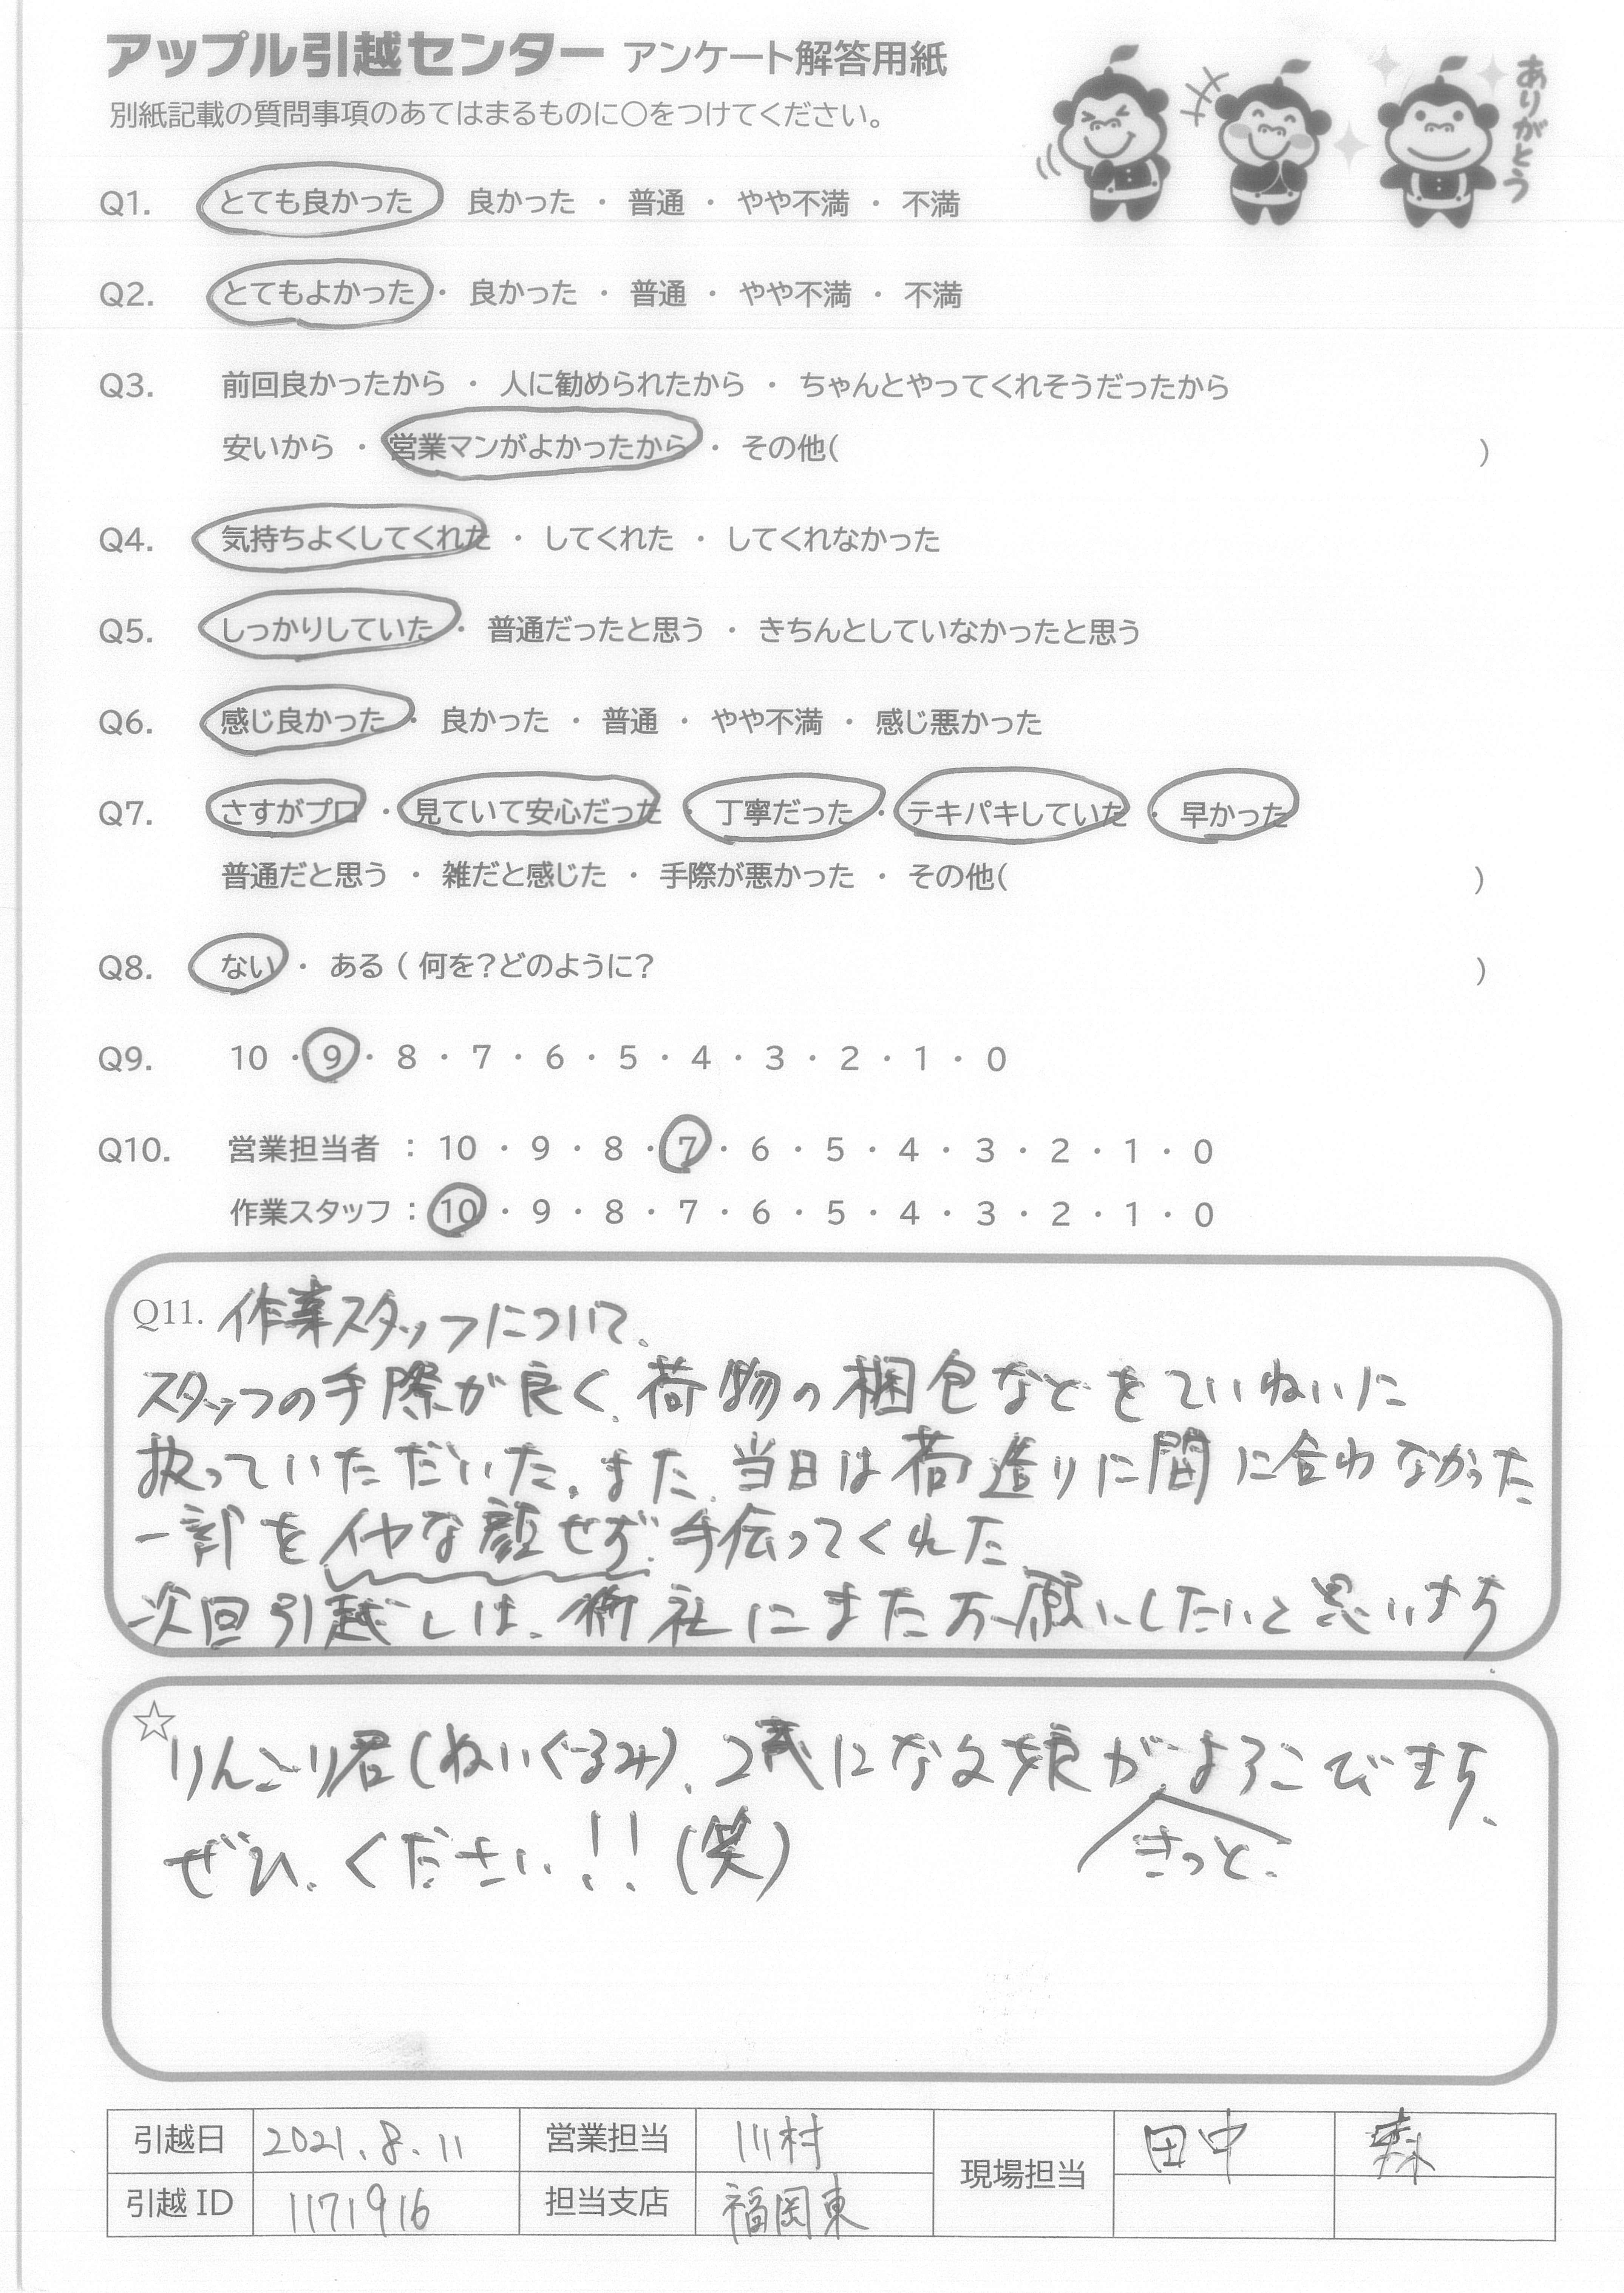 アップル引越センター アンケート解答用紙
別紙記載の質問事項のあてはまるものに〇をつけてください。
ありがとう
Q1. とても良かった 良かった ・ 普通 ・ やや不満 ・ 不満
Q2. とてもよかった ・ 良かった ・ 普通 ・ やや不満 ・ 不満
Q3. 前回良かったから ・ 人に勧められたから ・ ちゃんとやってくれそうだったから
安いから ・ 営業マンがよかったから ・ その他( )
Q4. 気持ちよくしてくれた ・ してくれた ・ してくれなかった
Q5. しっかりしていた ・ 普通だったと思う ・ きちんとしていなかったと思う
Q6. 感じ良かった ・ 良かった ・ 普通 ・ やや不満 ・ 感じ悪かった
Q7. さすがプロ ・ 見ていて安心だった ・ 丁寧だった ・ テキパキしていた ・ 早かった
普通だと思う ・ 雑だと感じた ・ 手際が悪かった ・ その他( )
Q8. ない ・ ある ( 何を?どのように? )
Q9. 10 ・ 9 ・ 8 ・ 7 ・ 6 ・ 5 ・ 4 ・ 3 ・ 2 ・ 1 ・ 0
Q10. 営業担当者 : 10 ・ 9 ・ 8 ・ 7 ・ 6 ・ 5 ・ 4 ・ 3 ・ 2 ・ 1 ・ 0
作業スタッフ : 10 ・ 9 ・ 8 ・ 7 ・ 6 ・ 5 ・ 4 ・ 3 ・ 2 ・ 1 ・ 0
Q11. 作業スタッフについて、
スタッフの手際が良く、荷物の梱包などをていねいに
扱っていただいた。また、当日は荷造りに間に合わなかった
一部をイヤな顔せず、手伝ってくれた。
次回引越しは、御社にまたお願いしたいと思います。
☆ りんごり君(ぬいぐるみ)、2歳になる娘がよろこびます。
きっと、
ぜひ、ください!!(笑)
引越日 2021.8.11 営業担当 川村 現場担当 田中 森
引越ID 1171916 担当支店 福岡東